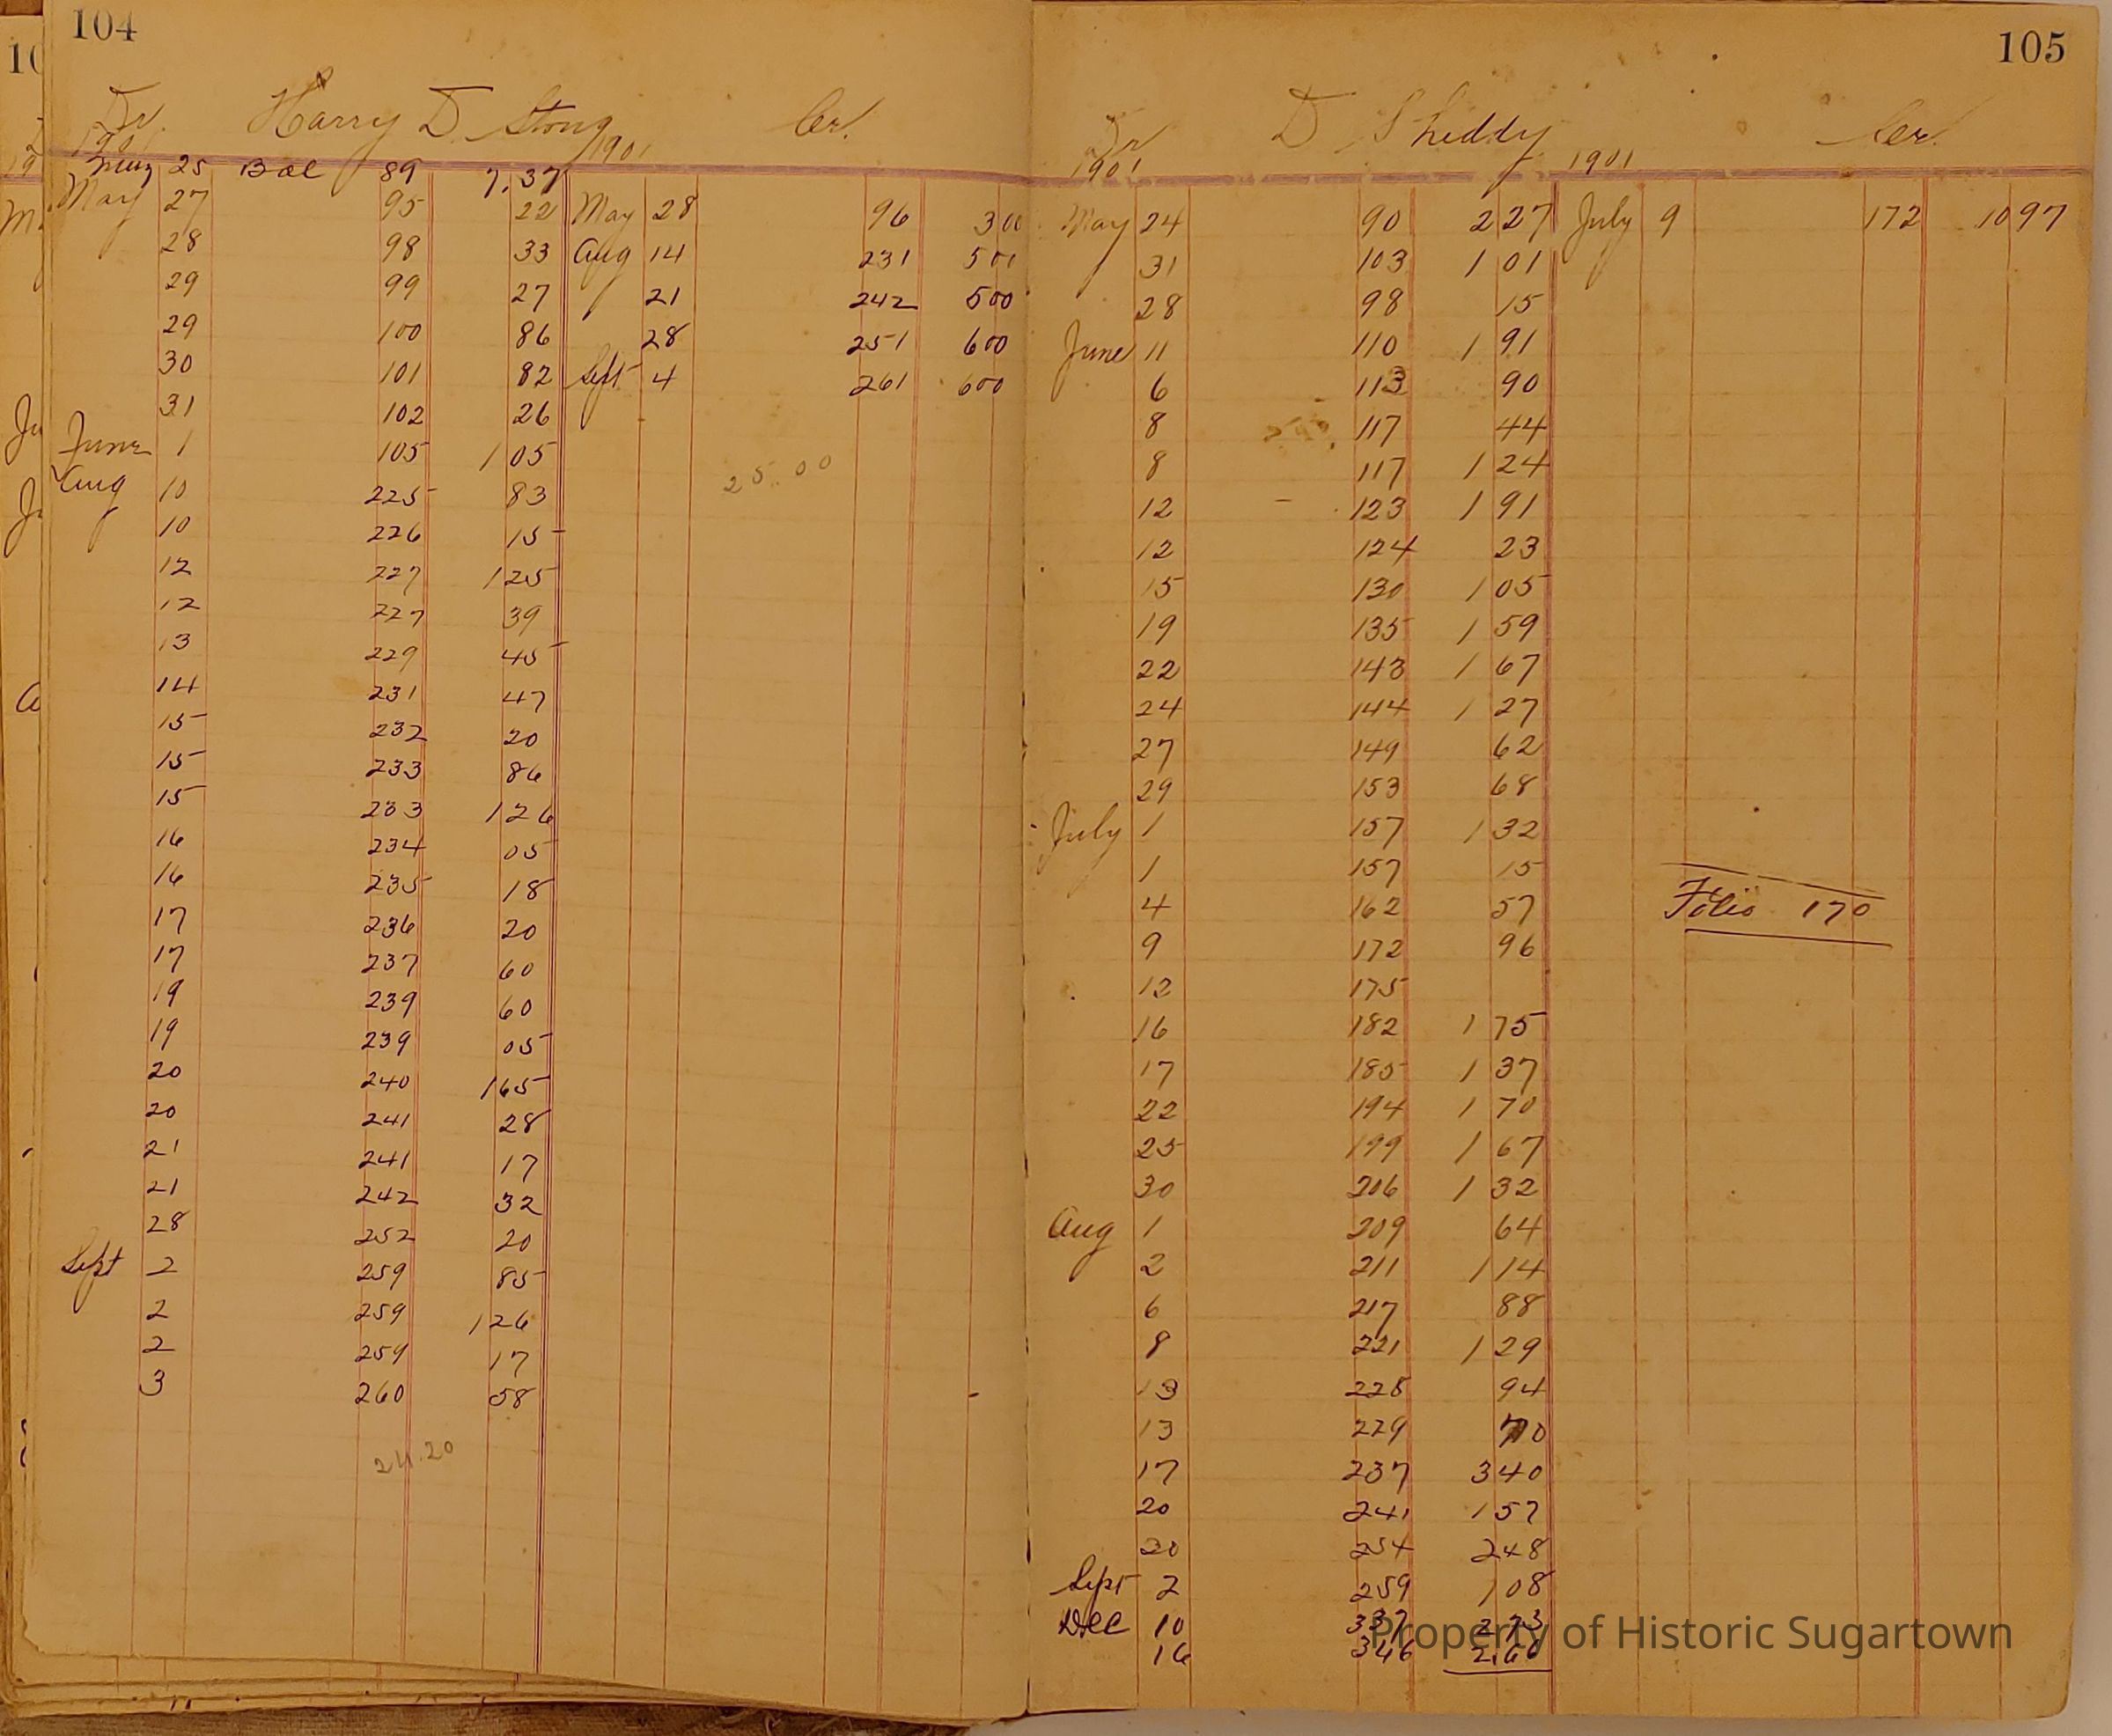 104
Dr. Harry D. Stong Cr.
1901 1901
May 25 Bal 89 7.37
May 27 95 22 May 28 96 300
28 98 33 Aug 14 231 500
29 99 27 21 242 500
29 100 86 28 251 600
30 101 82 Sept 4 261 600
31 102 26
June 1 105 1 05
25.00
Aug 10 225 83
10 226 15
12 227 1 25
12 227 39
13 229 45
14 231 47
15 232 20
15 233 86
15 233 1 26
16 234 05
16 235 18
17 236 20
17 237 60
19 239 60
19 239 05
20 240 1 65
20 241 28
21 241 17
21 242 32
28 252 20
Sept 2 259 85
2 259 1 26
2 259 17
3 260 58
24.20
105
Dr D Shiddy Cr.
1901 1901
May 24 90 2 27 July 9 172 10 97
31 103 1 01
28 98 15
June 11 110 1 91
6 113 90
8 117 44
8 117 1 24
12 123 1 91
12 124 23
15 130 1 05
19 135 1 59
22 143 1 67
24 144 1 27
27 149 62
29 153 68
July 1 157 1 32
1 157 15
4 162 57
Folio 170
9 172 96
12 175
16 182 1 75
17 185 1 37
22 194 1 70
25 199 1 67
30 206 1 32
Aug 1 209 64
2 211 1 14
6 217 88
8 221 1 29
13 228 94
13 229 70
17 237 3 40
20 241 1 57
30 254 2 48
Sept 2 259 1 08
Dec 10 337 2 73
16 346 2.60
Property of Historic Sugartown